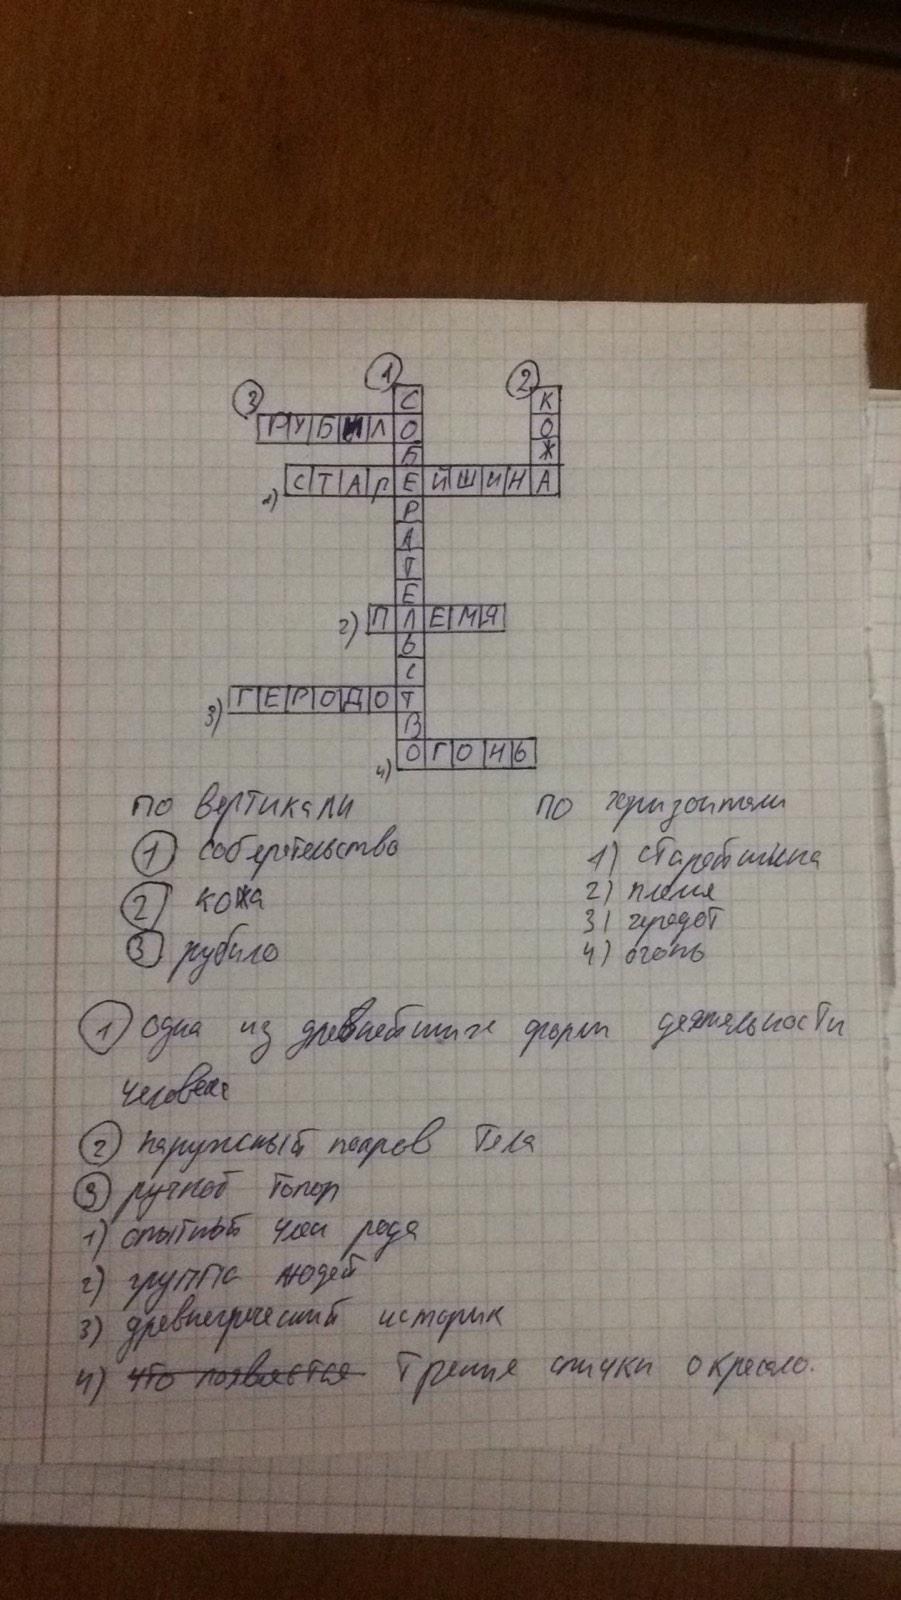 1 2
3
С К
РУБИЛО О
Б Ж
1) СТАРЕЙШИНА
Р
А
Т
Е
2) ПЛЕМЯ
Ь
С
3) ГЕРОДОТ
В
4) ОГОНЬ
по вертикали по горизонтали
1 собирательство 1) старейшина
2 кожа 2) племя
3 рубило 3) геродот
4) огонь
1 одна из древнейших форм деятельности
человека
2 наружный покров тела
3 ручной топор
1) опытный член рода
2) группа людей
3) древнегреческий историк
4) что появляется Трение спички о кресало.